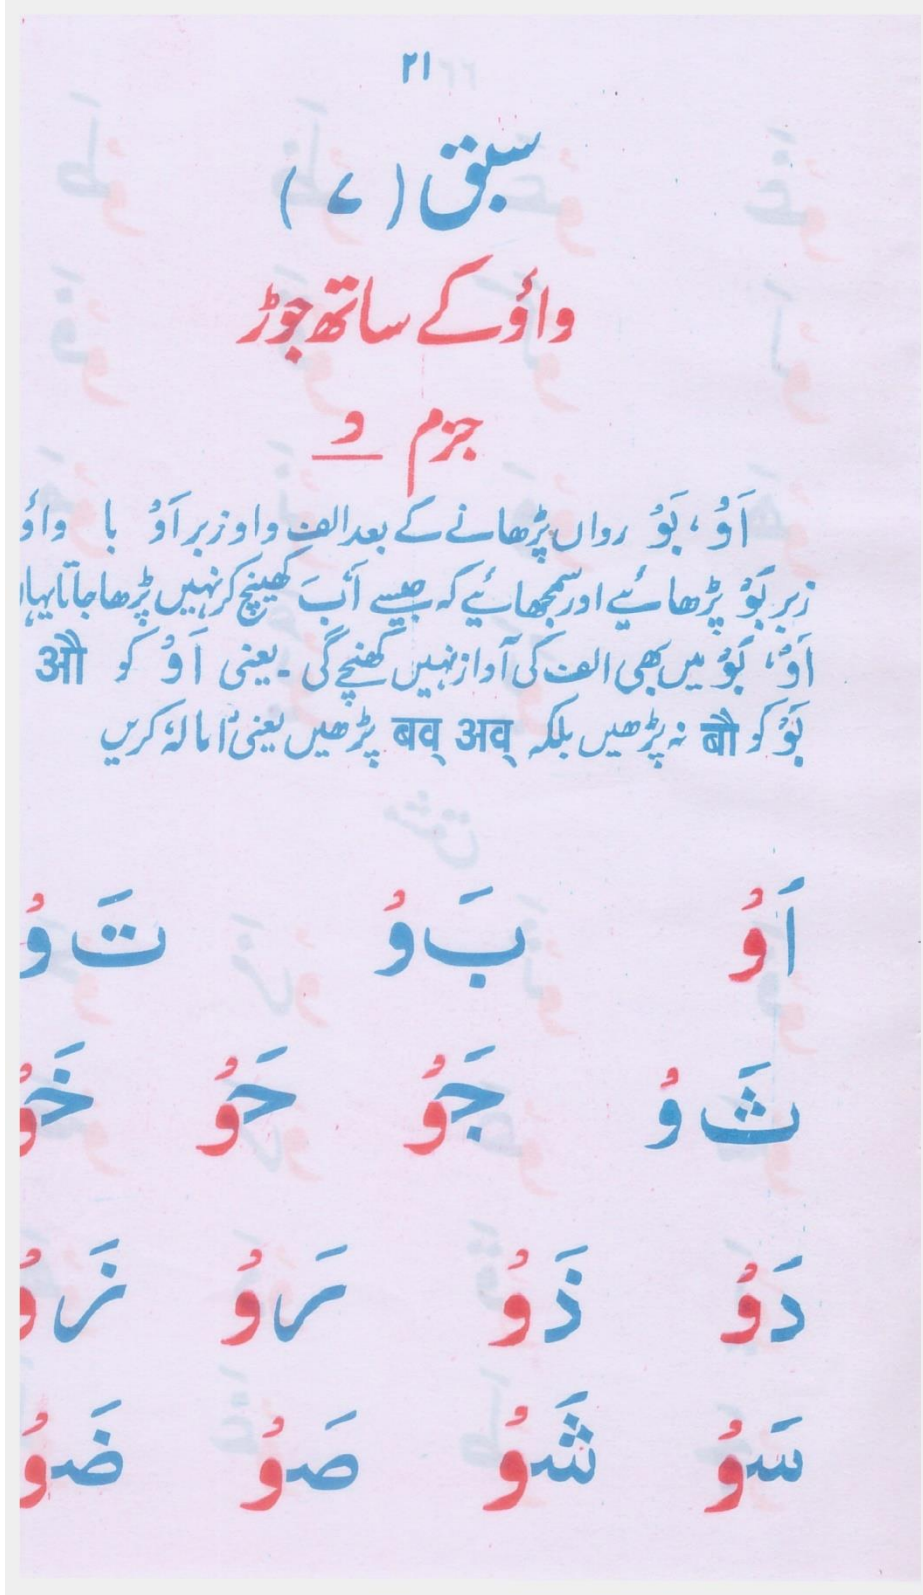 ۲۱
سبق (۷)
واؤ کے ساتھ جوڑ
جزم  ْ
اَوْ ، بَوْ رواں پڑھانے کے بعد الف واو زبر اَوْ با واؤ
زبر بَوْ پڑھائیے اور سمجھائیے کہ جیسے اَبَ کھینچ کر نہیں پڑھا جاتا یہاں
اَوْ، بَوْ میں بھی الف کی آواز نہیں کھنچے گی ۔ یعنی اَوْ کو औ
بَوْ کو बौ نہ پڑھیں بلکہ अव् बव् پڑھیں یعنی اِمالہ کریں
اَوْ بَ وْ تَ وْ
ثَ وْ جَوْ حَوْ خَوْ
دَوْ ذَوْ رَوْ زَوْ
سَوْ شَوْ صَوْ ضَوْ